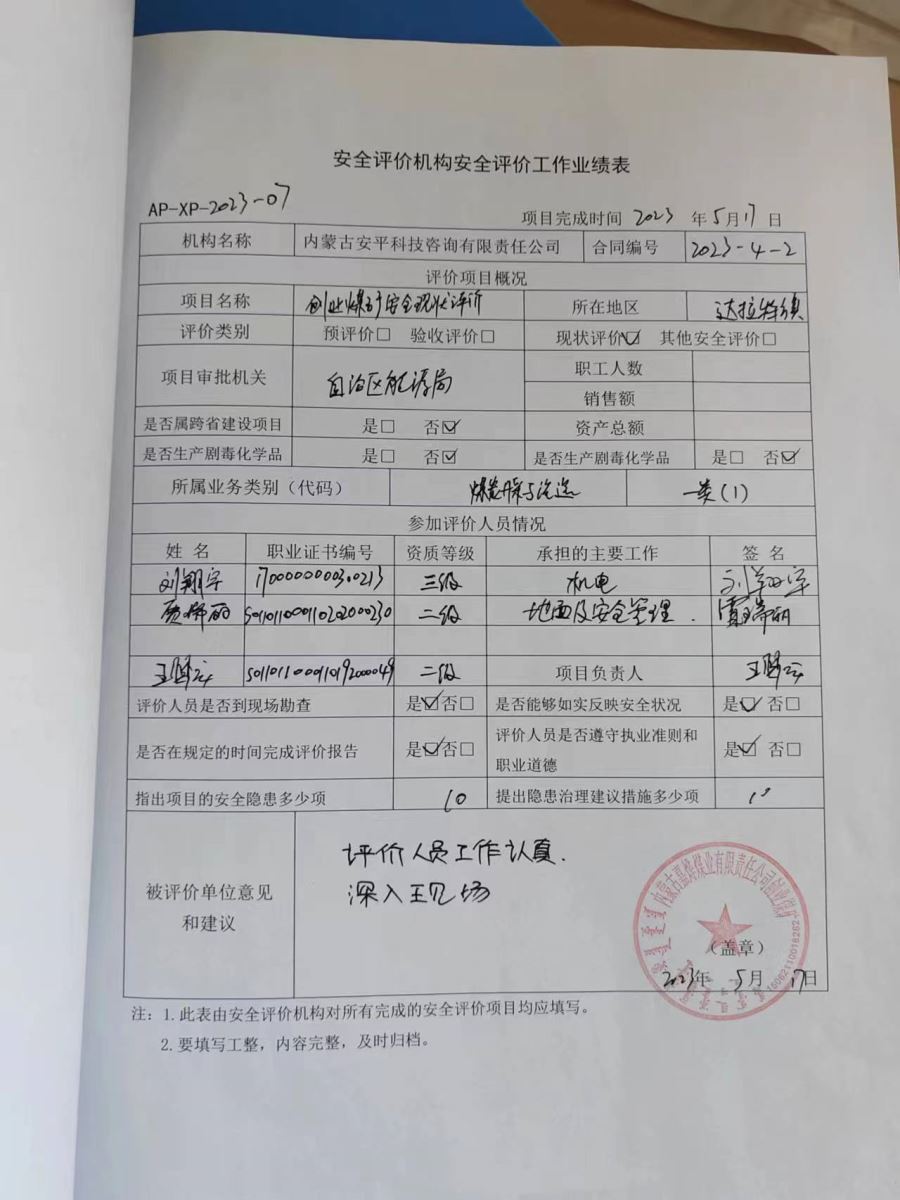 安全评价机构安全评价工作业绩表
AP-XP-2023-07
项目完成时间 2023 年 5 月 17 日
机构名称 内蒙古安平科技咨询有限责任公司 合同编号 2023-4-2
评价项目概况
项目名称 创业煤矿安全现状评价 所在地区 达拉特镇
评价类别 预评价□ 验收评价□ 现状评价☑ 其他安全评价□
项目审批机关 自治区能源局 职工人数
销售额
是否属跨省建设项目 是□ 否☑ 资产总额
是否生产剧毒化学品 是□ 否☑ 是否生产剧毒化学品 是□ 否☑
所属业务类别（代码） 煤炭开采与洗选 一类(1)
参加评价人员情况
姓 名 职业证书编号 资质等级 承担的主要工作 签 名
刘翔宇 三级 机电 刘翔宇
二级 地面及安全管理
二级 项目负责人
评价人员是否到现场勘查 是☑否□ 是否能够如实反映安全状况 是☑否□
是否在规定的时间完成评价报告 是☑否□ 评价人员是否遵守执业准则和
职业道德 是☑ 否□
指出项目的安全隐患多少项 10 提出隐患治理建议措施多少项 10
被评价单位意见
和建议
评价人员工作认真.
深入现场
（盖章）
2023年 5月 17日
注：1.此表由安全评价机构对所有完成的安全评价项目均应填写。
2.要填写工整，内容完整，及时归档。